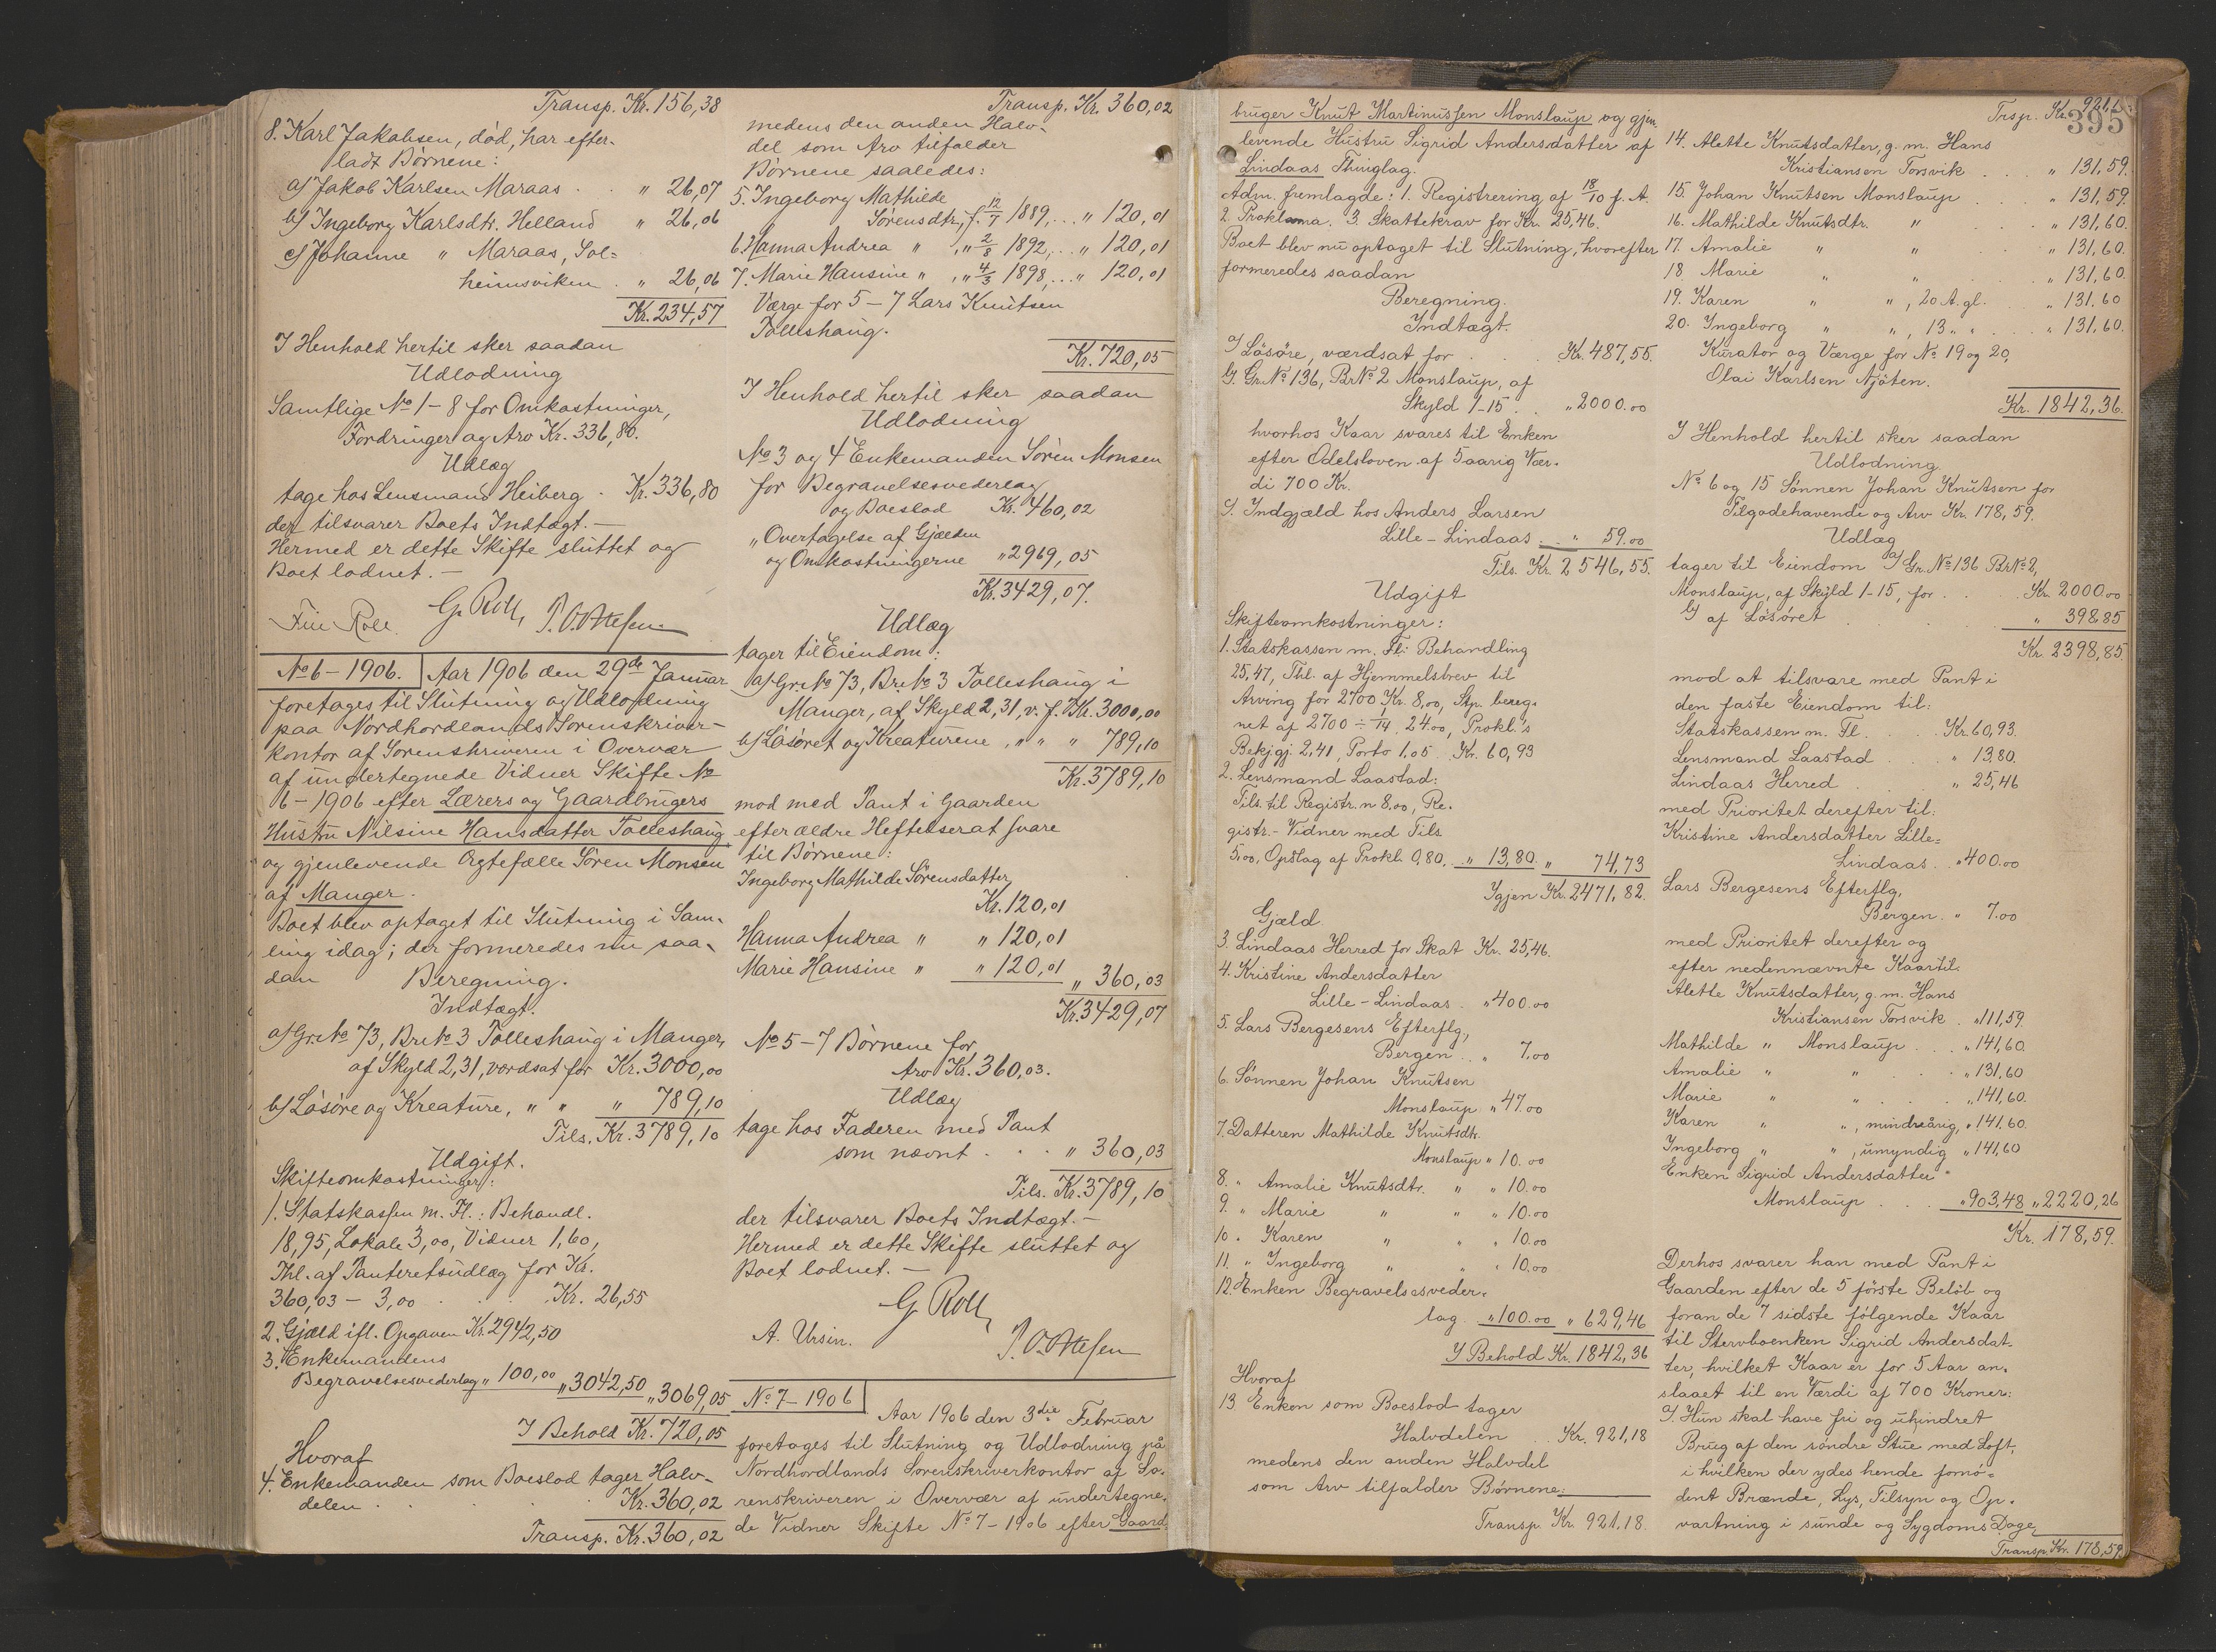 Transp. Kr. 156,38
8. Karl Jakobsen, död, har efter-
ladt Börnene:
a/ Jakob Karlsen Maraas . . " 26,07
b/ Ingeborg Karlsdtr. Helland " 26,06
c/ Johanne " Maraas, Sol-
heimsviken . " 26,06
Kr. 234,57
I Henhold hertil sker saadan
Udlodning
Samtlige No 1-8 for Omkostninger,
Fordringer og Arv Kr. 336,80.
Udlæg
tage hos Lensmand Heiberg . Kr. 336,80
der tilsvarer Boets Indtægt.-
Hermed er dette Skifte sluttet og
Boet lodnet.-
G. Roll, P. Ottesen
No 6-1906. Aar 1906 den 29de Januar
foretages til Slutning og Udlodning
paa Nordhordlands Sorenskriver-
kontor af Sorenskriveren i Overvær
af undertegnede Vidner Skifte No
6-1906 efter Lærers og Gaardbrugers
Hustru Nilsine Hansdatter Tolleshaug
og gjenlevende Ægtefælle Sören Monsen
af Manger.
Boet blev optaget til Slutning i Sam-
ling idag; der formeredes nu saa-
dan Beregning.
Indtægt.
a/ Gr. No 73, Br. No 3 Tolleshaug i Manger,
af Skyld 2,31, værdsat for Kr. 3000,00
b/ Lösöre og Kreature, " " " 789,10
Tils. Kr. 3789,10
Udgift.
Skifteomkostninger:
1. Statskassen m. Fl.: Behandl.
18,95, Lokale 3,00, Vidner 1,60,
Thl. af Panteretsudlæg for Kr.
360,03 - 3,00 . . . Kr. 26,55
2. Gjæld ifl. Opgaven Kr. 2942,50
3. Enkemandens
Begravelsesvederlag " 100,00 " 3042,50 " 3069,05
I Behold Kr. 720,05
Hvoraf
4. Enkemanden som Boeslod tager Halv-
delen . . . . Kr. 360,02
Transp. Kr. 360,02
Transp. Kr. 360,02
medens den anden Halv-
del som Arv tilfalder
Börnene saaledes:
5. Ingeborg Mathilde
Sörensdtr, f. 12/7 1889, ... " 120,01
6. Hanna Andrea " , " 2/8 1892, ... " 120,01
7. Marie Hansine " , " 4/3 1898, ... " 120,01
Værge for 5-7 Lars Knutsen
Tolleshaug.
Kr. 720,05
I Henhold hertil sker saadan
Udlodning
No 3 og 4 Enkemanden Sören Monsen
for Begravelsesvederlag
og Boeslod Kr. 460,02
" Overtagelse af Gjælden
og Omkostningerne " 2969,05
Kr. 3429,07.
Udlæg
tager til Eiendom:
a/ Gr. No 73, Br. No 3 Tolleshaug i
Manger, af Skyld 2,31, v. f. Kr. 3000,00
b/ Lösöret og Kreaturene, " " " 789,10
Kr. 3789,10
mod med Pant i Gaarden
efter ældre Heftelser at svare
til Börnene:
Ingeborg Mathilde Sörensdatter
Kr. 120,01
Hanna Andrea " " 120,01
Marie Hansine " " 120,01 " 360,03
Kr. 3429,07
No 5-7 Börnene for
Arv Kr. 360,03.
Udlæg
tage hos Faderen med Pant
som nævnt . . . " 360,03
Tils. Kr. 3789,10
der tilsvarer Boets Indtægt.-
Hermed er dette Skifte sluttet og
Boet lodnet.-
G. Roll,
A. Ursin. P. Ottesen
No 7-1906
Aar 1906 den 3die Februar
foretages til Slutning og Udlodning på
Nordhordlands Sorenskriverkontor af So-
renskriveren i Overvær af undertegne-
de Vidner Skifte No 7-1906 efter Gaard-
bruger Knut Martinussen Monslaup og gjen-
levende Hustru Sigrid Andersdatter af
Lindaas Thinglag.
Adm. fremlagde: 1. Registrering af 18/10 f. A.
2. Proklama. 3. Skattekrav for Kr. 25,46.
Boet blev nu optaget til Slutning, hvorefter
formeredes saadan
Beregning.
Indtægt.
a/ Lösöre, værdsat for . . . Kr. 487,55.
b/. Gr. No 136, Br. No 2 Monslaup, af
Skyld 1-15 . . " 2000.00
hvorhos Kaar svares til Enken
efter Odelsloven af 5aarig Vær-
di 700 Kr.
c/. Indgjæld hos Anders Larsen
Lille-Lindaas . . " 59.00
Tils. Kr. 2546,55.
Udgift
Skifteomkostninger:
1. Statskassen m. Fl: Behandling
25,47, Thl. af Hjemmelsbrev til
Arving for 2700 Kr. 8,00, Stp. bereg-
net af 2700 ÷ 1/14, 24.00, Prokl.'s
Bekjgj. 2,41, Porto 1.05 Kr. 60,93
2. Lensmand Laastad:
Tils. til Registr.n 8.00, Re-
gistr.-Vidner med Tils
5,00, Opslag af Prokl. 0,80. " 13,80. " 74,73
Igjen Kr. 2471,82.
Gjæld
3. Lindaas Herred for Skat Kr. 25,46.
4. Kristine Andersdatter
Lille-Lindaas . " 400.00
5. Lars Bergesens Efterflg,
Bergen . . " 7.00
6. Sönnen Johan Knutsen
Monslaup " 47.00
7. Datteren Mathilde Knutsdtr.
Monslaup " 10.00
8. " Amalie Knutsdtr. " " 10.00
9. " Marie " " " 10.00
10. " Karen " " " 10.00
11. " Ingeborg " " " 10.00
12. Enken Begravelsesveder-
lag. " 100.00 " 629,46
I Behold Kr. 1842,36
Hvoraf
13 Enken som Boeslod tager
Halvdelen . Kr. 921,18
medens den anden Halvdel
som Arv tilfalder Börnene:
Transp. Kr. 921,18.
395
Trsp. Kr. 921,18
14. Alette Knutsdatter, g. m. Hans
Kristiansen Torsvik . . . " 131,59.
15. Johan Knutsen Monslaup . . . " 131,59.
16. Mathilde Knutsdtr. " . . " 131,60.
17. Amalie " " . . " 131,60.
18 Marie " " . . " 131,60.
19. Karen " " , 20 A. gl. . . " 131,60
20. Ingeborg " " , 13 " " . . . " 131,60.
Kurator og Værge for No 19 og 20,
Olai Karlsen Njöten.
Kr. 1842,36.
I Henhold hertil sker saadan
Udlodning
No 6 og 15 Sönnen Johan Knutsen for
Tilgodehavende og Arv Kr. 178,59.
Udlæg
tager til Eiendom a/ Gr. No 136 Br. No 2,
Monslaup, af Skyld 1-15, for . . . Kr. 2000.00
b/ af Lösöret . . . . " 398,85
Kr. 2398,85.
mod at tilsvare med Pant i
den faste Eiendom til:
Statskassen m. Fl. . . . Kr. 60,93.
Lensmand Laastad . . . " 13,80.
Lindaas Herred . . . " 25,46
med Prioritet derefter til:
Kristine Andersdatter Lille-
Lindaas . " 400.00
Lars Bergesens Efterflg,
Bergen . " 7.00
med Prioritet derefter og
efter nedennævnte Kaar til:
Alette Knutsdatter, g. m. Hans
Kristiansen Torsvik . " 111,59.
Mathilde " Monslaup . . . " 141,60.
Amalie " " . . " 131,60
Marie " " . . . " 141,60.
Karen " " , mindreårig, " 141,60.
Ingeborg " " , umyndig " 141,60
Enken Sigrid Andersdatter
Monslaup . . . " 903,48 " 2220,26
Kr. 178,59.
Derhos svarer han med Pant i
Gaarden efter de 5 förste Belöb og
foran de 7 sidste fölgende Kaar
til Stervboenken Sigrid Andersdat-
ter, hvilket Kaar er for 5 Aar an-
slaaet til en Værdi af 700 Kroner:
a/. Hun skal have fri og uhindret
Brug af den söndre Stue med Loft,
i hvilken der ydes hende fornö-
dent Brænde, Lys, Tilsyn og Op-
vartning i sunde og Sygdoms Dage,
Transp. Kr. 178,59.